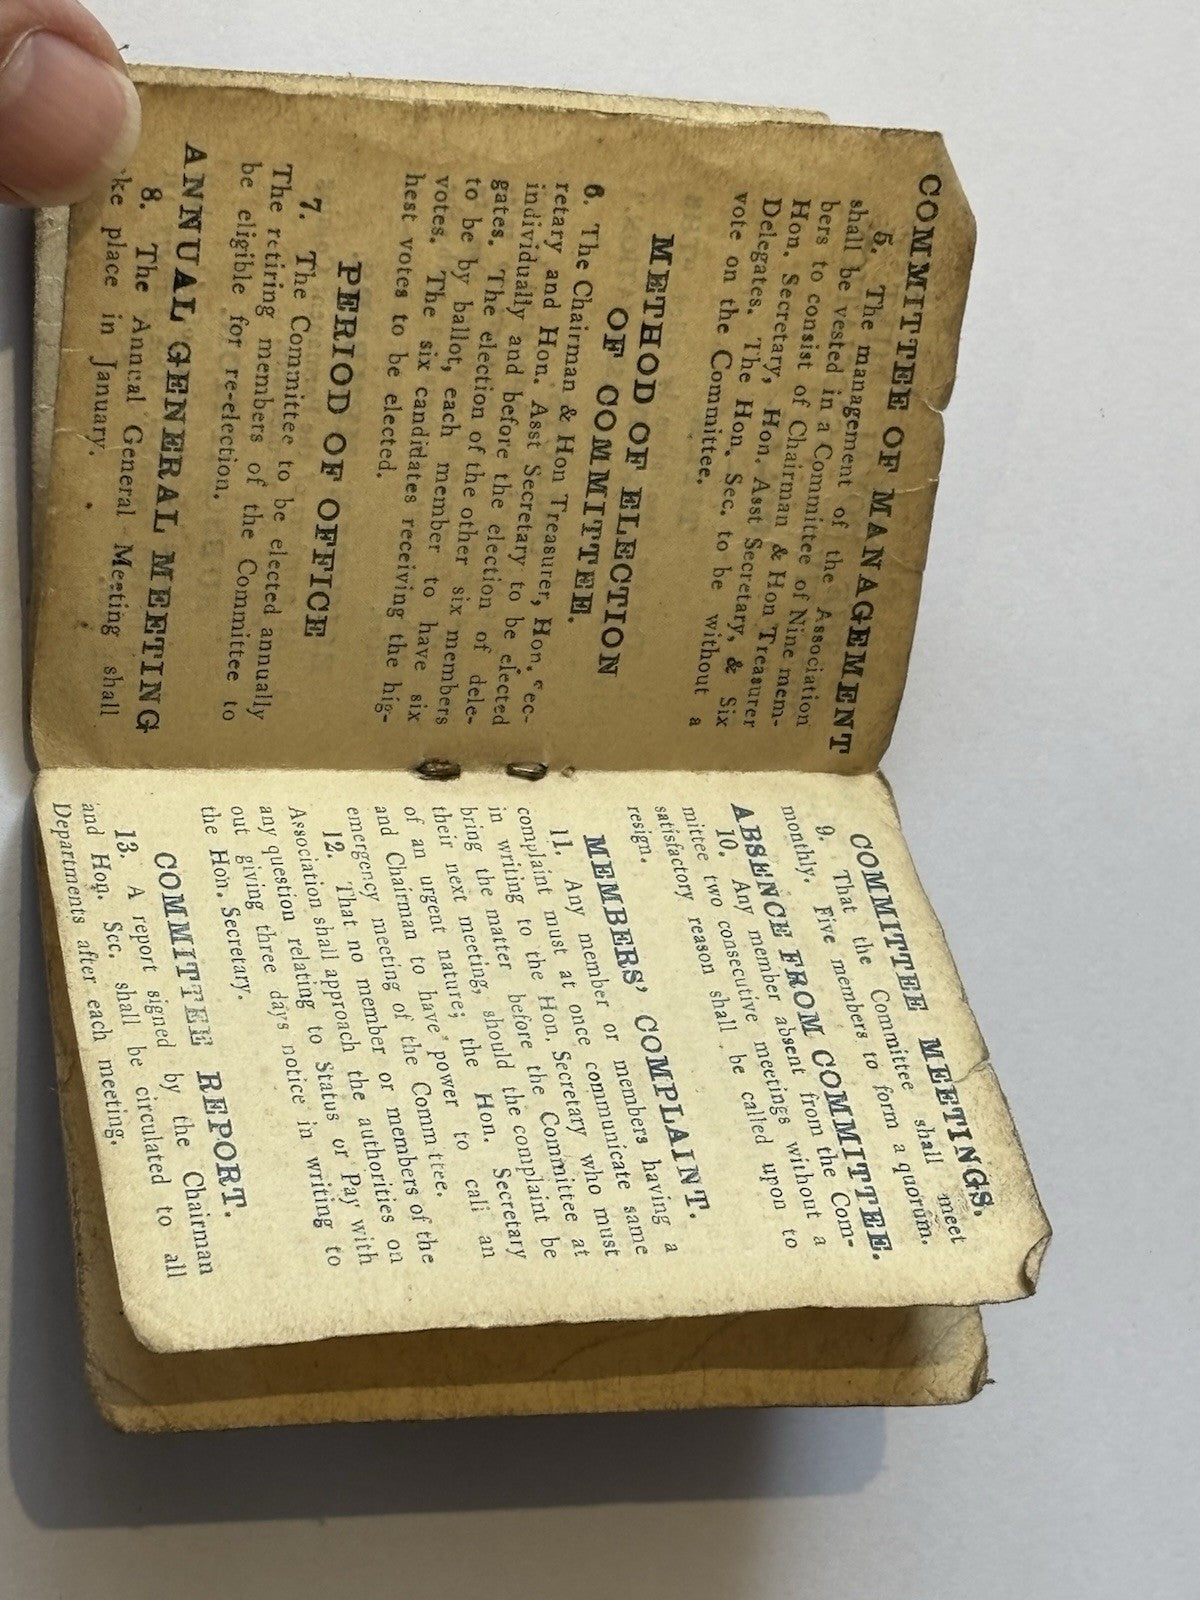 COMMITTEE OF MANAGEMENT
5. The management of the Association
shall be vested in a Committee of Nine mem-
bers to consist of Chairman & Hon Treasurer
Hon. Secretary, Hon. Asst Secretary, & Six
Delegates. The Hon. Sec. to be without a
vote on the Committee.
METHOD OF ELECTION
OF COMMITTEE.
6. The Chairman & Hon Treasurer, Hon. ec-
retary and Hon. Asst Secretary to be elected
individually and before the election of dele-
gates. The election of the other six members
to be by ballot, each member to have six
votes. The six candidates receiving the hig-
hest votes to be elected.
PERIOD OF OFFICE
7. The Committee to be elected annually
The retiring members of the Committee to
be eligible for re-election.
ANNUAL GENERAL MEETING
8. The Annual General Meeting shall
ke place in January.
COMMITTEE MEETINGS.
9. That the Committee shall meet
monthly. Five members to form a quorum.
ABSENCE FROM COMMITTEE.
10. Any member absent from the Com-
mittee two consecutive meetings without a
satisfactory reason shall be called upon to
resign.
MEMBERS' COMPLAINT.
11. Any member or members having a
complaint must at once communicate same
in writing to the Hon. Secretary who must
bring the matter before the Committee at
their next meeting, should the complaint be
of an urgent nature; the Hon. Secretary
and Chairman to have power to call an
emergency meeting of the Comm ttee.
12. That no member or members of the
Association shall approach the authorities on
any question relating to Status or Pay with
out giving three days notice in writing to
the Hon. Secretary.
COMMITTEE REPORT.
13. A report signed by the Chairman
and Hon. Sec. shall be circulated to all
Departments after each meeting.